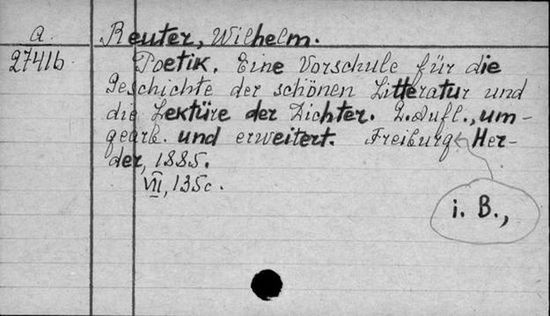 a. Reuter, Wilhelm.
27416 Poetik. Eine Vorschule für die
Geschichte der schönen Litteratur und
die Lektüre der Dichter. 2. Aufl., um-
gearb. und erweitert. Freiburg Her-
der, 1885.
VII, 135c.
i. B.,